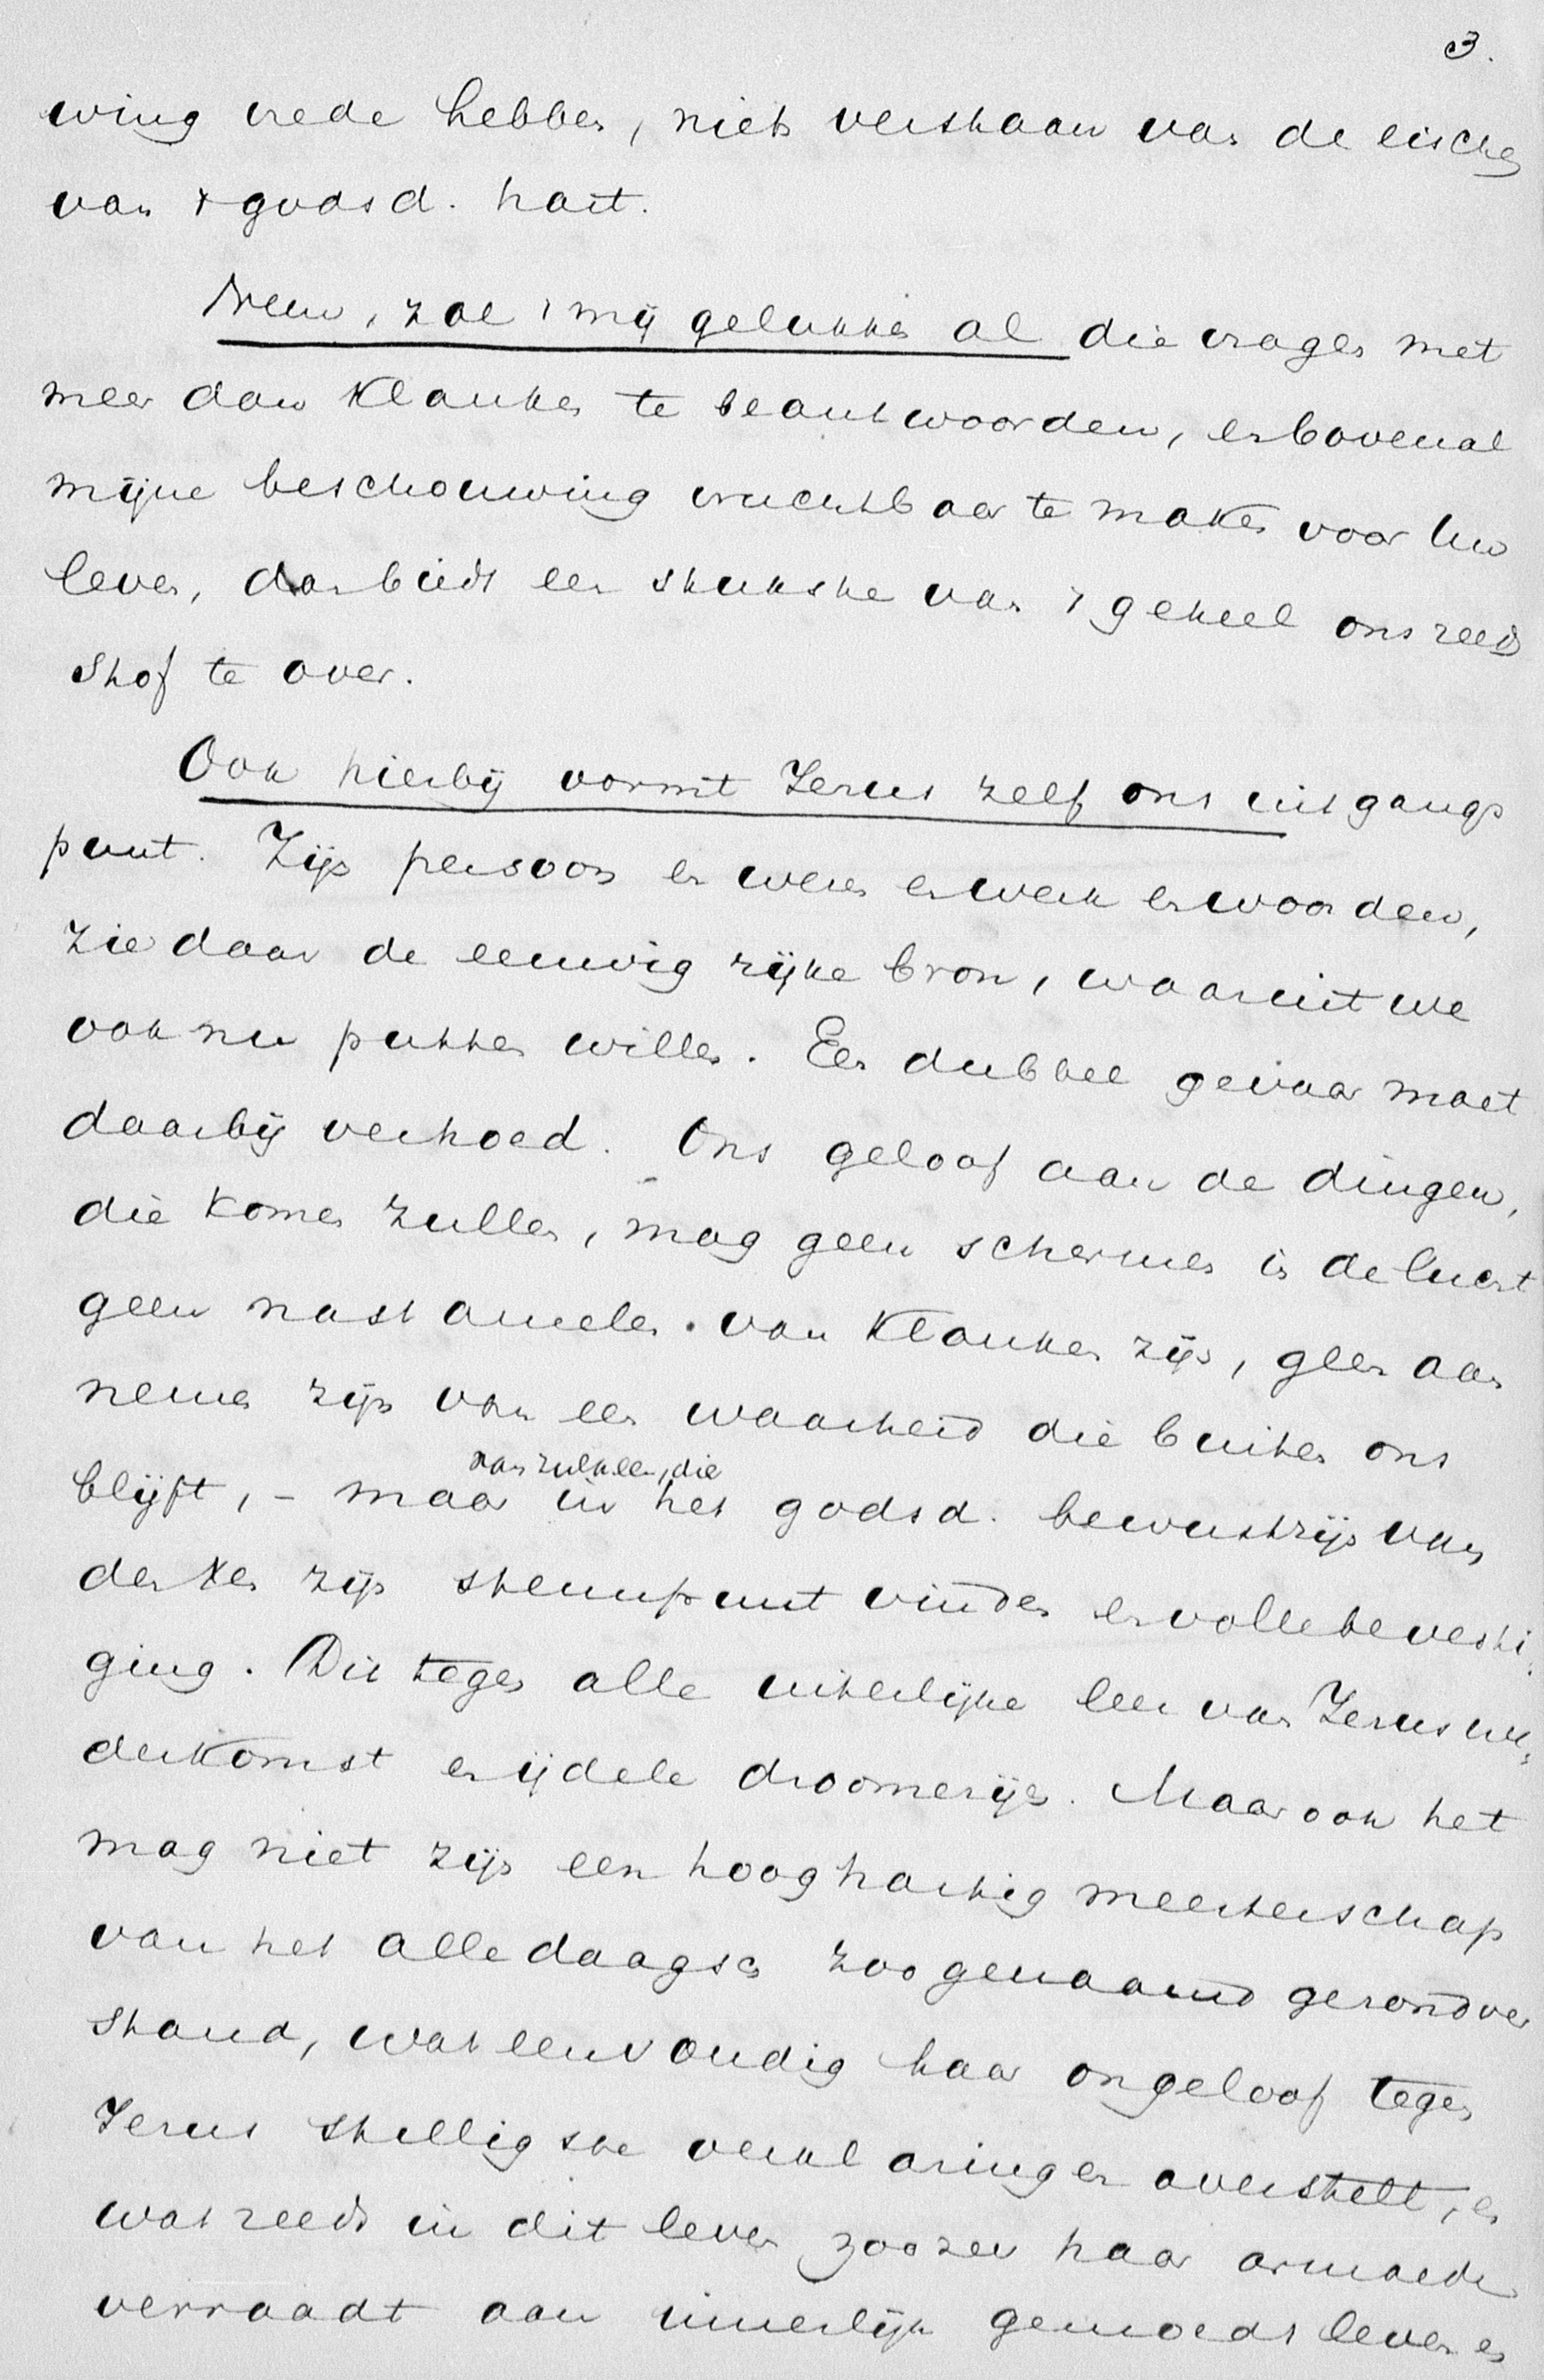 3.
wing vrede hebben, niets verstaan van de eischen
van 't godsd. hart.
Neen, zal 't mij gelukken al die vragen met
meer dan klanken te beantwoorden, en bovenal
mijne beschouwing vruchtbaar te maken voor Uw
leven, dan biedt een stukske van 't geheel ons reeds
stof te over.
Ook hierbij vormt Jezus zelf ons uitgangs
punt. Zijn persoon en wezen en werk en woorden,
ziedaar de eeuwig rijke bron, waaruit we
ook nu putten willen. Een dubbel gevaar moet
daarbij verhoed. Ons geloof aan de dingen,
die komen zullen, mag geen schermen in de lucht
geen nastamelen van klanken zijn, geen aan
nemen zijn van een waarheid die buiten ons
blijft, - maar in het godsd. bewustzijn van
van zulken, die
denken zijn steunpunt vinden en volle bevesti-
ging. Dit tegen alle uiterlijke leer van Jezus we-
derkomst en ijdele droomerijen. Maar ook het
mag niet zijn een hooghartig meesterschap
van het alledaagsch zoogenaamd gezond ver
stand, wat eenvoudig haar ongeloof tegen
Jezus stelligste verklaringen overstelt, en
wat reeds in dit leven zoozeer haar armoede
verraadt aan innerlijk gemoedsleven en